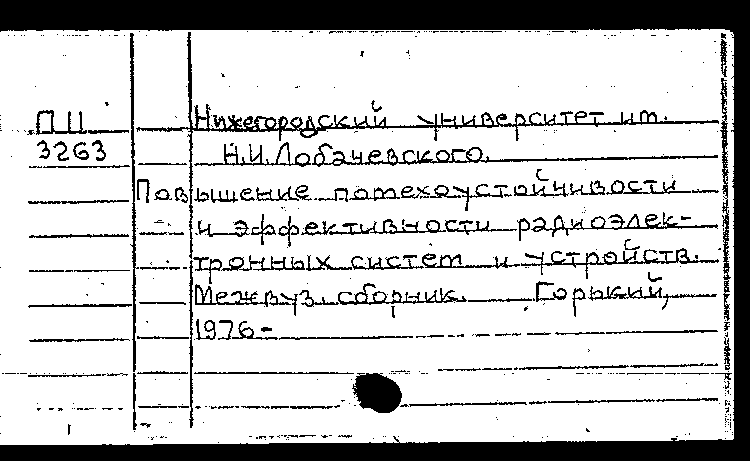 П11 Нижегородский университет им.
3263 Н.И.Лобачевского.
Повышение помехоустойчивости
и эффективности радиоэлек-
тронных систем и устройств.
Межвуз. сборник. Горький,
1976-